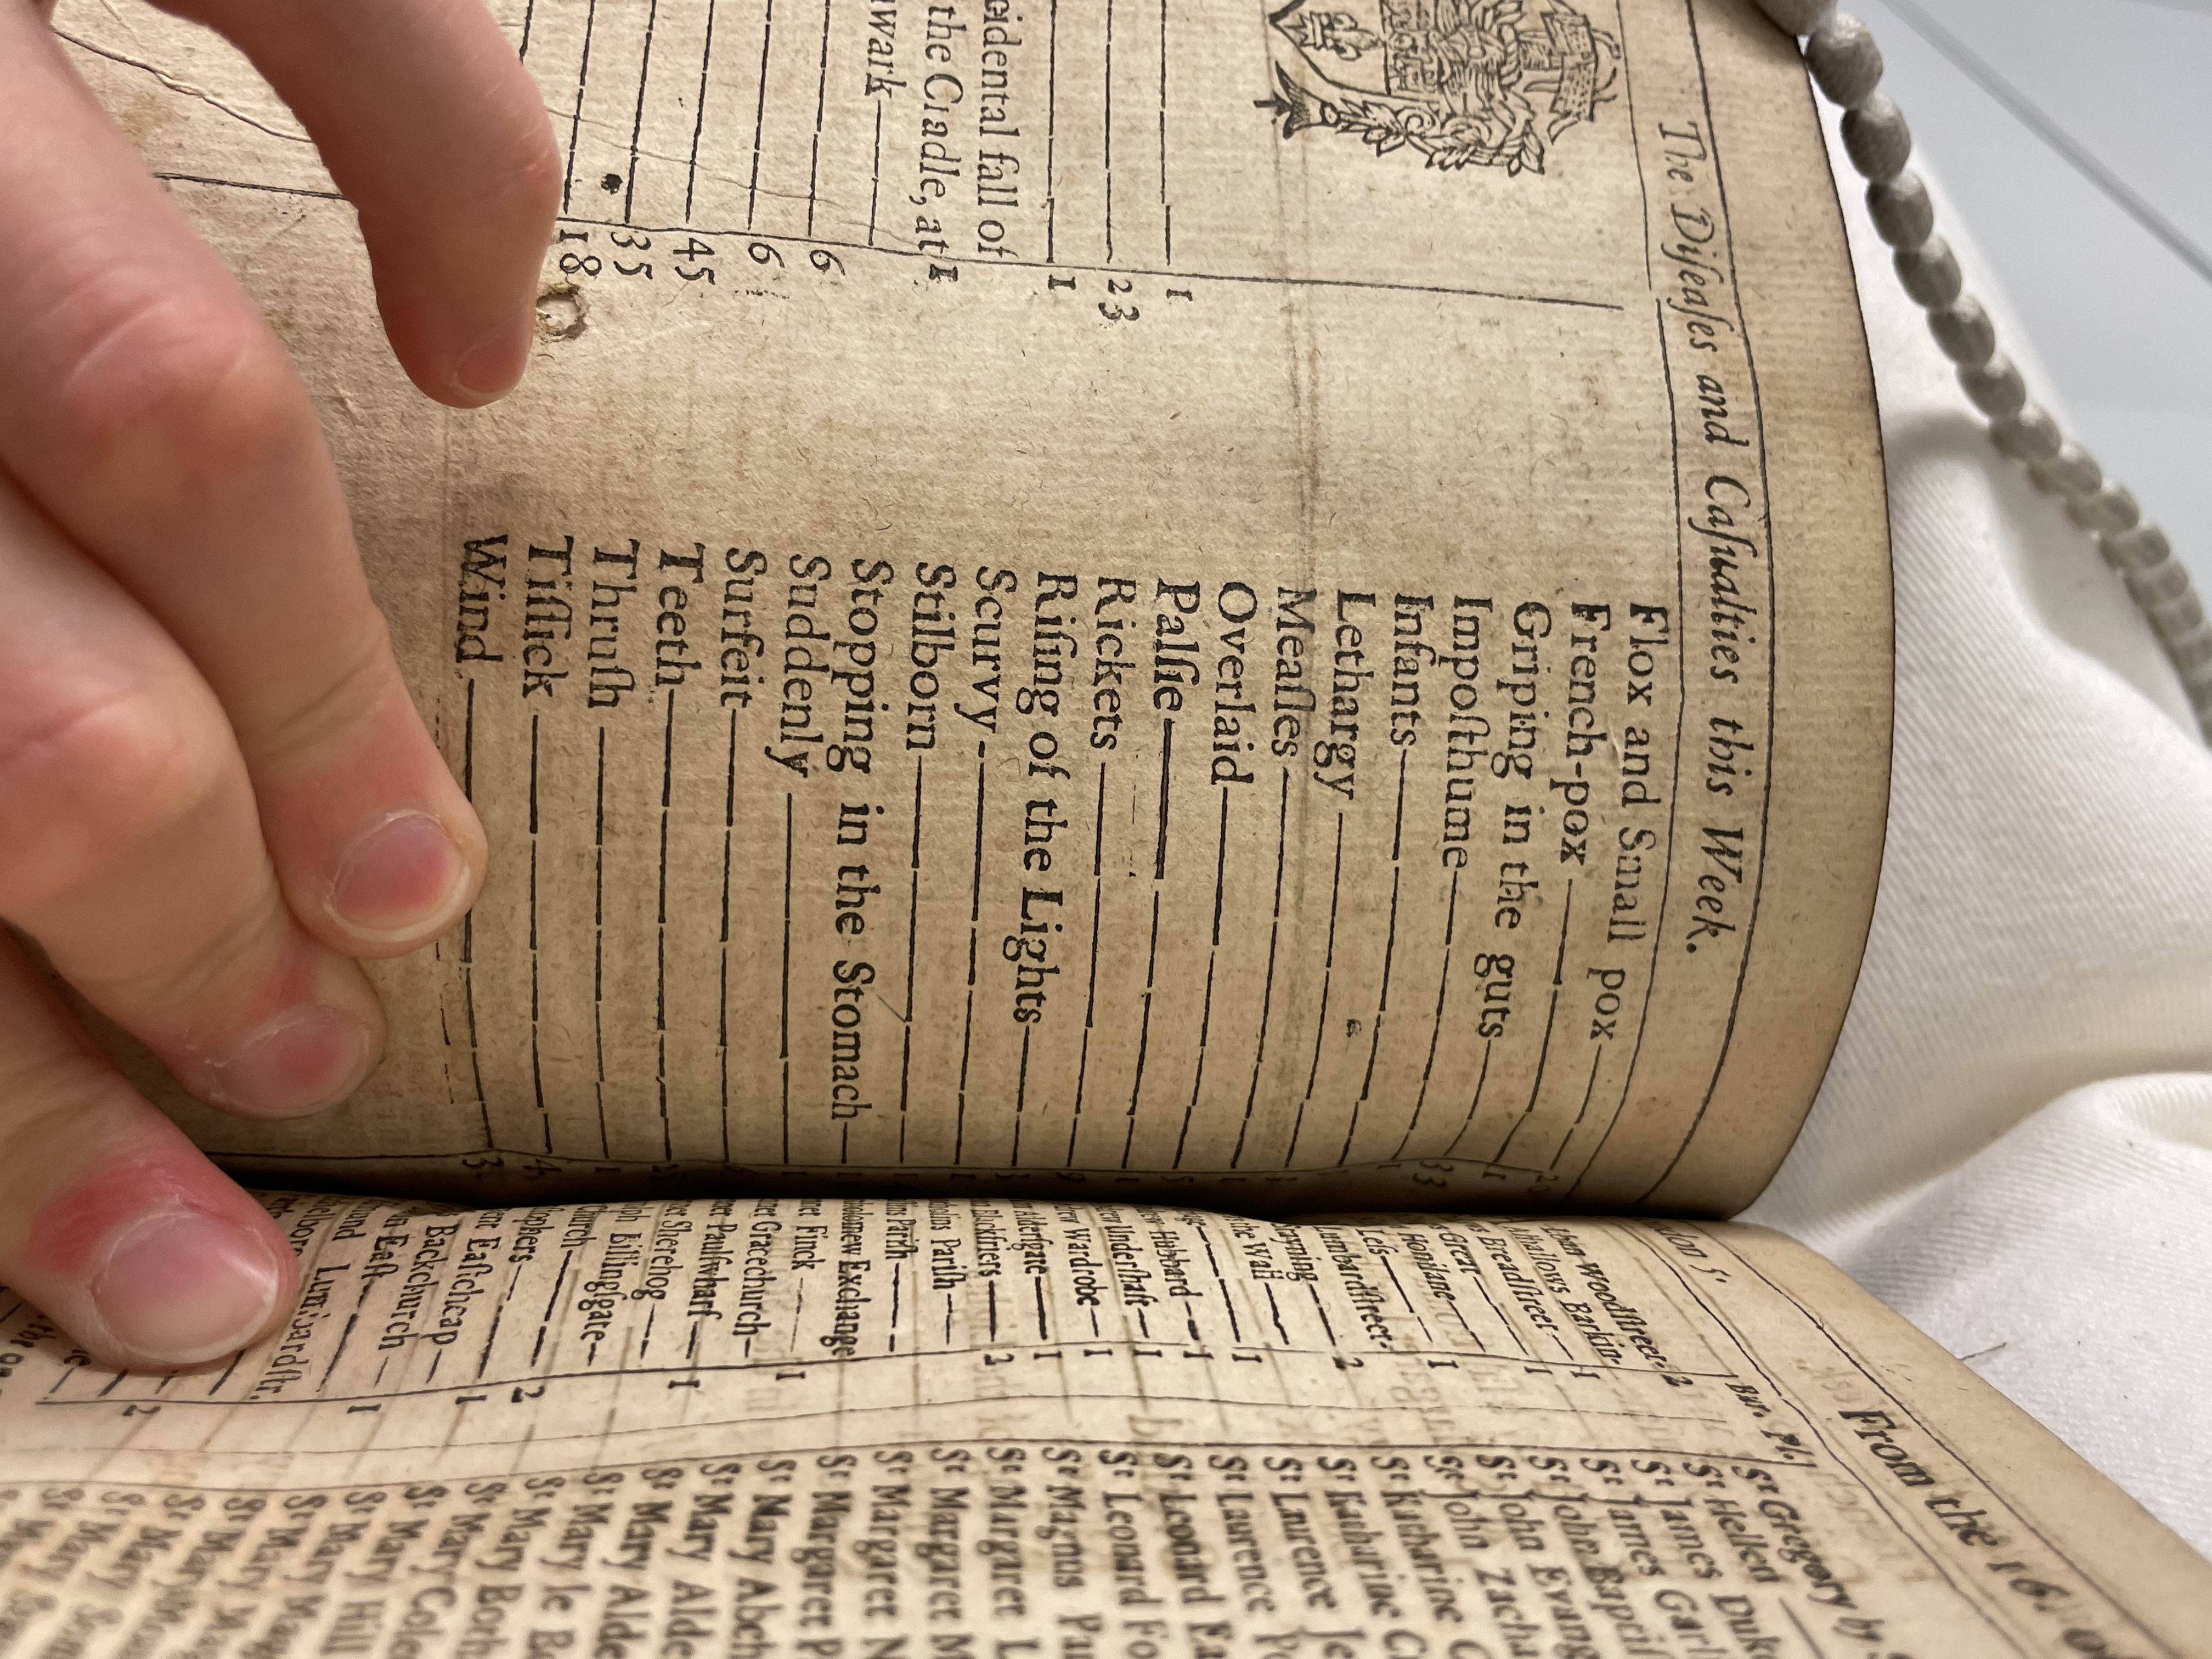 The Diſeaſes and Caſualties this Week.
1
23
1
cidental fall of
the Cradle, at 1
wark
6
6
45
35
18
Flox and Small pox
French-pox
Griping in the guts 33
Impoſthume
Infants
Lethargy
Meaſles
Overlaid
Palſie
Rickets
Riſing of the Lights
Scurvy
Stilborn
Stopping in the Stomach
Suddenly
Surfeit
Teeth
Thruſh
Tiſſick
Wind 3
From the 16. of
Bur.
Woodſtreet 2
Barkin 1
Breadſtreet 1
Great
Honilane 1
Leſs
Lumbardſtreet
2
the Wall
1
Hubbard 1
Underſhaft 1
Wardrobe 1
Alderſgate 1
Blackfriers 3
Pariſh
Pariſh
Exchange
Finck 1
Gracechurch
Paulſwharf 1
Sherehog
Billingſgate
church
2
Eaſtcheap 1
Backchurch
Eaſt 1
Lumbardſtr.
2
St Gregory by
St Hellen
St James Duke
St James Garl
St John Baptiſt
St John Evang
St John Zacha
St Katharine C
St Katharine C
St Laurence Je
St Laurence Po
St Leonard Ea
St Leonard Fo
St Magnus Pa
St Margaret L
St Margaret M
St Margaret N
St Margaret P
St Mary Abch
St Mary Alde
St Mary Alde
St Mary le Bo
St Mary Both
St Mary Cole
St Mary Hill
St Mary
St Mary
St Mary
St Mary